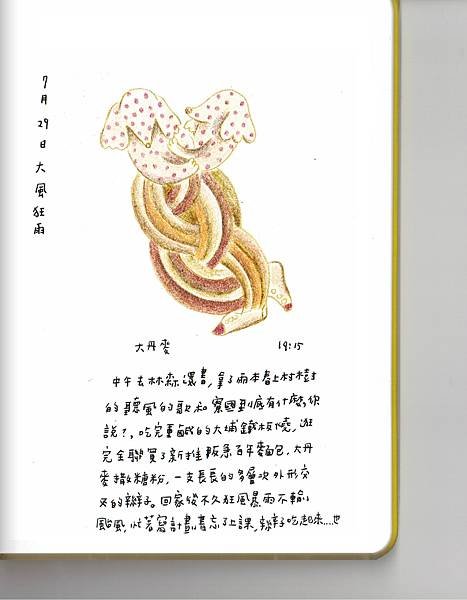 7月29日大風狂雨
大丹麥 19:15
中午去林森還書,拿了兩本春上村樹
的聽風的歌和寮國到底有什麼,你
說?,吃完重鹹的大埔鐵板燒,逛
完全聯買了新推阪急百年麵包,大丹
麥撒糖粉,一支長長的多層次外形交
叉的辮子。回家後不久狂風暴雨不輸
颱風,忙著寫計畫書忘了上課,辮子吃起來....也